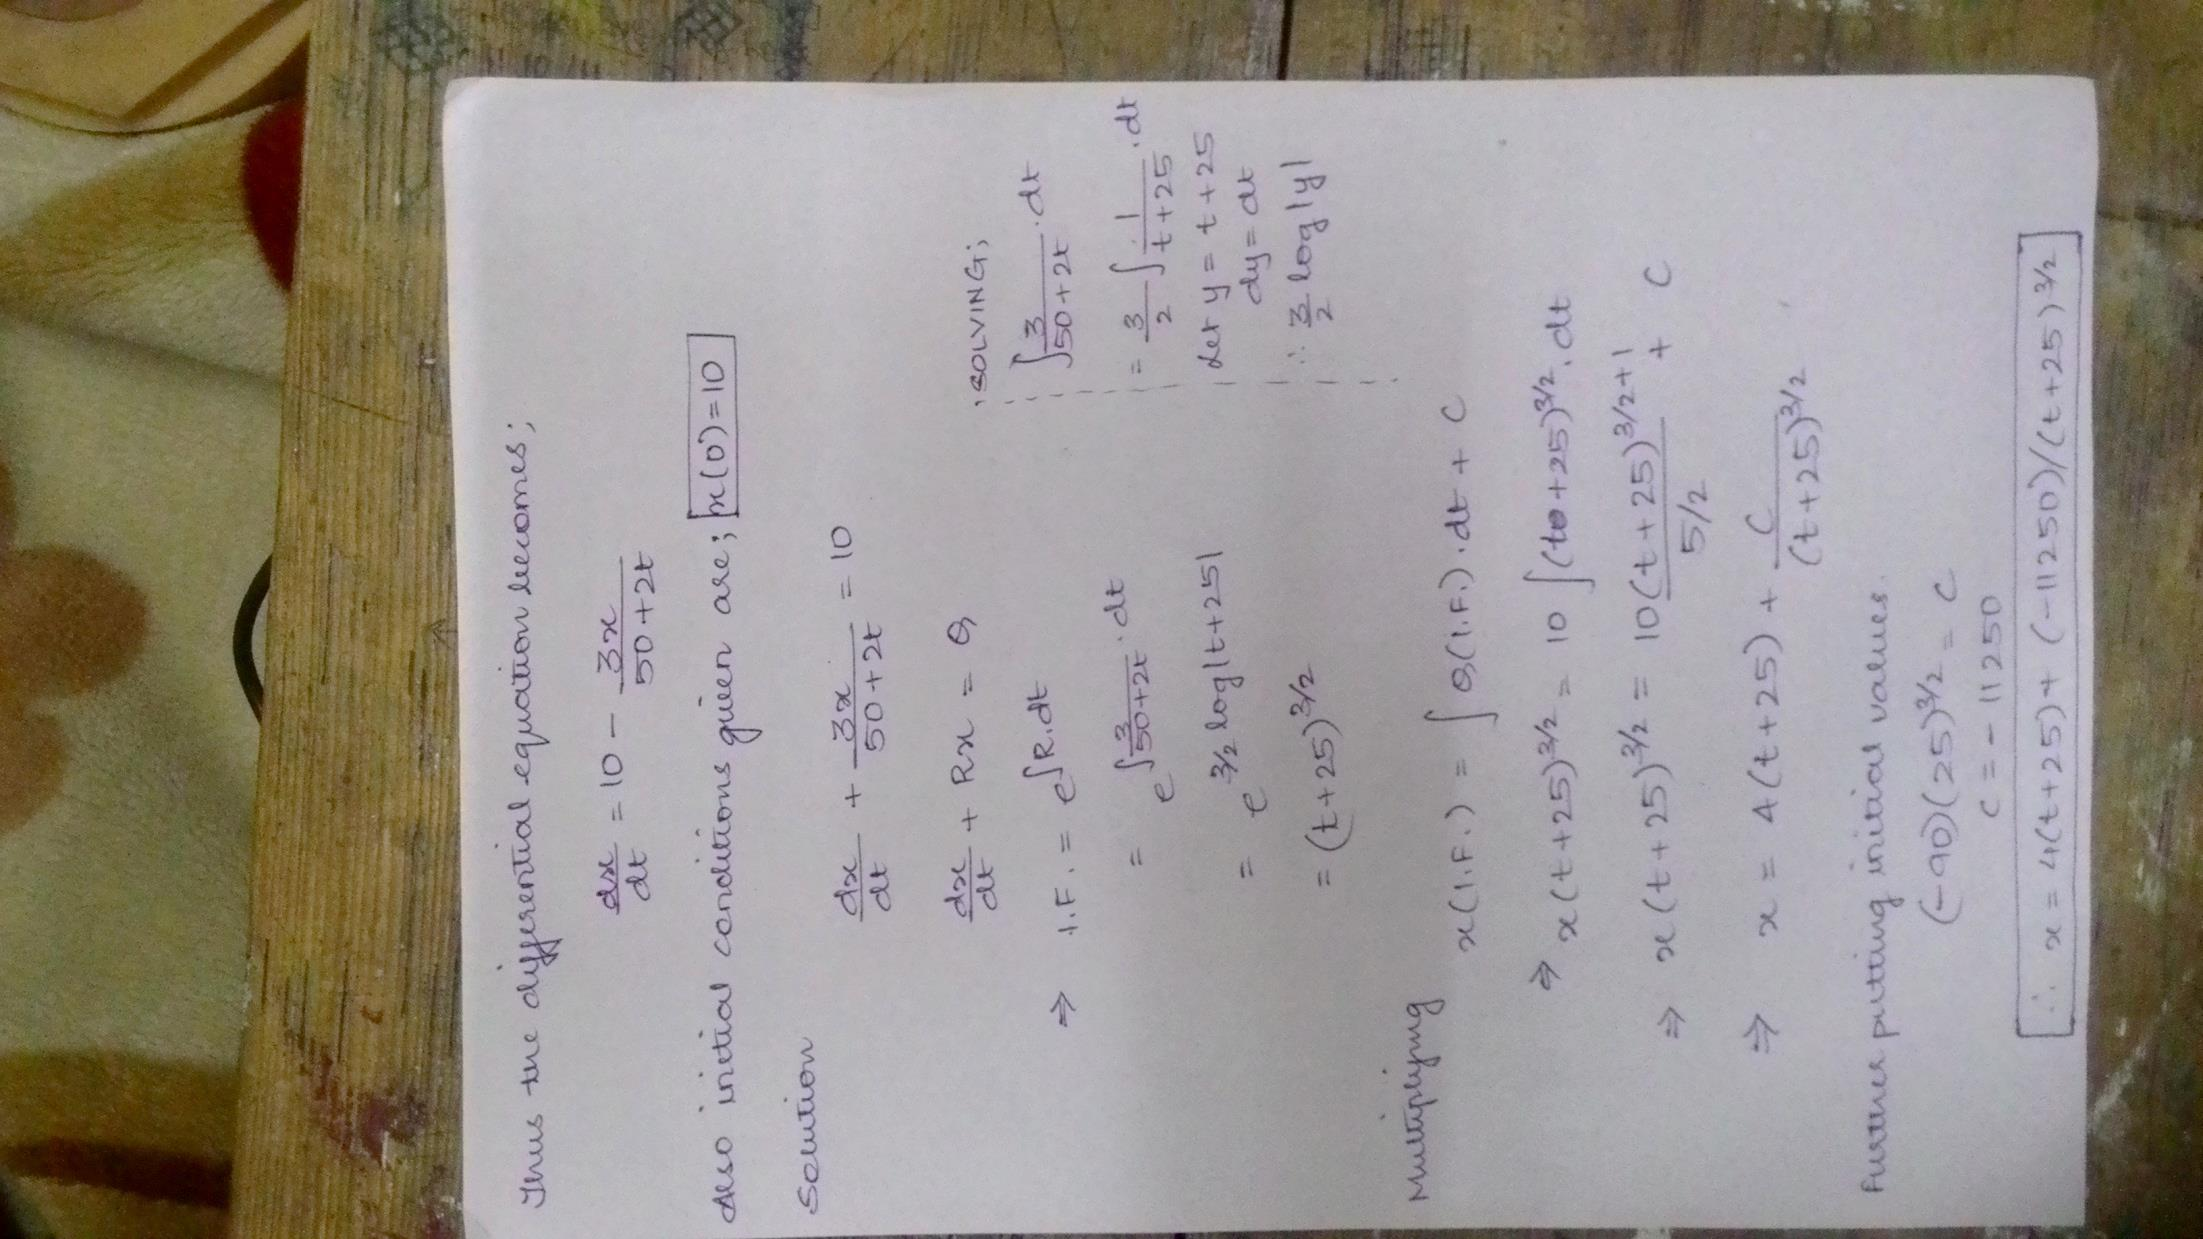 Thus the differential equation becomes;
dx/dt = 10 - 3x/(50+2t)
Also initial conditions given are; x(0)=10
Solution
dx/dt + 3x/(50+2t) = 10
dx/dt + Rx = Q
SOLVING;
⇒ I.F. = e^∫R.dt
∫ 3/(50+2t) .dt
= e^∫3/(50+2t) .dt
= 3/2 ∫ 1/(t+25) .dt
= e^3/2 log|t+25|
Let y = t+25
dy = dt
= (t+25)^3/2
∴ 3/2 log|y|
Multiplying
x(I.F.) = ∫ Q(I.F.).dt + C
⇒ x(t+25)^3/2 = 10 ∫(t+25)^3/2 .dt
⇒ x(t+25)^3/2 = 10 (t+25)^3/2+1 / 5/2 + C
⇒ x = 4(t+25) + C/(t+25)^3/2
Further putting initial values.
(-90)(25)^3/2 = C
C = -11250
∴ x = 4(t+25) + (-11250)/(t+25)^3/2